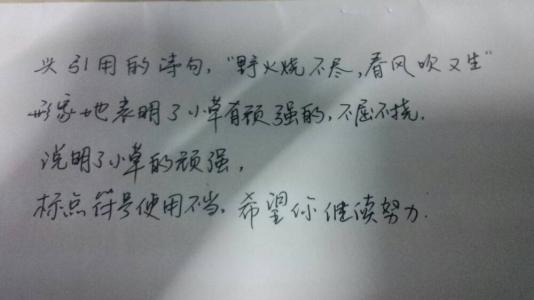 引用的诗句,"野火烧不尽,春风吹又生"
形象地表明了小草有顽强的,不屈不挠.
说明了小草的顽强,
标点符号使用不当。希望你继续努力.